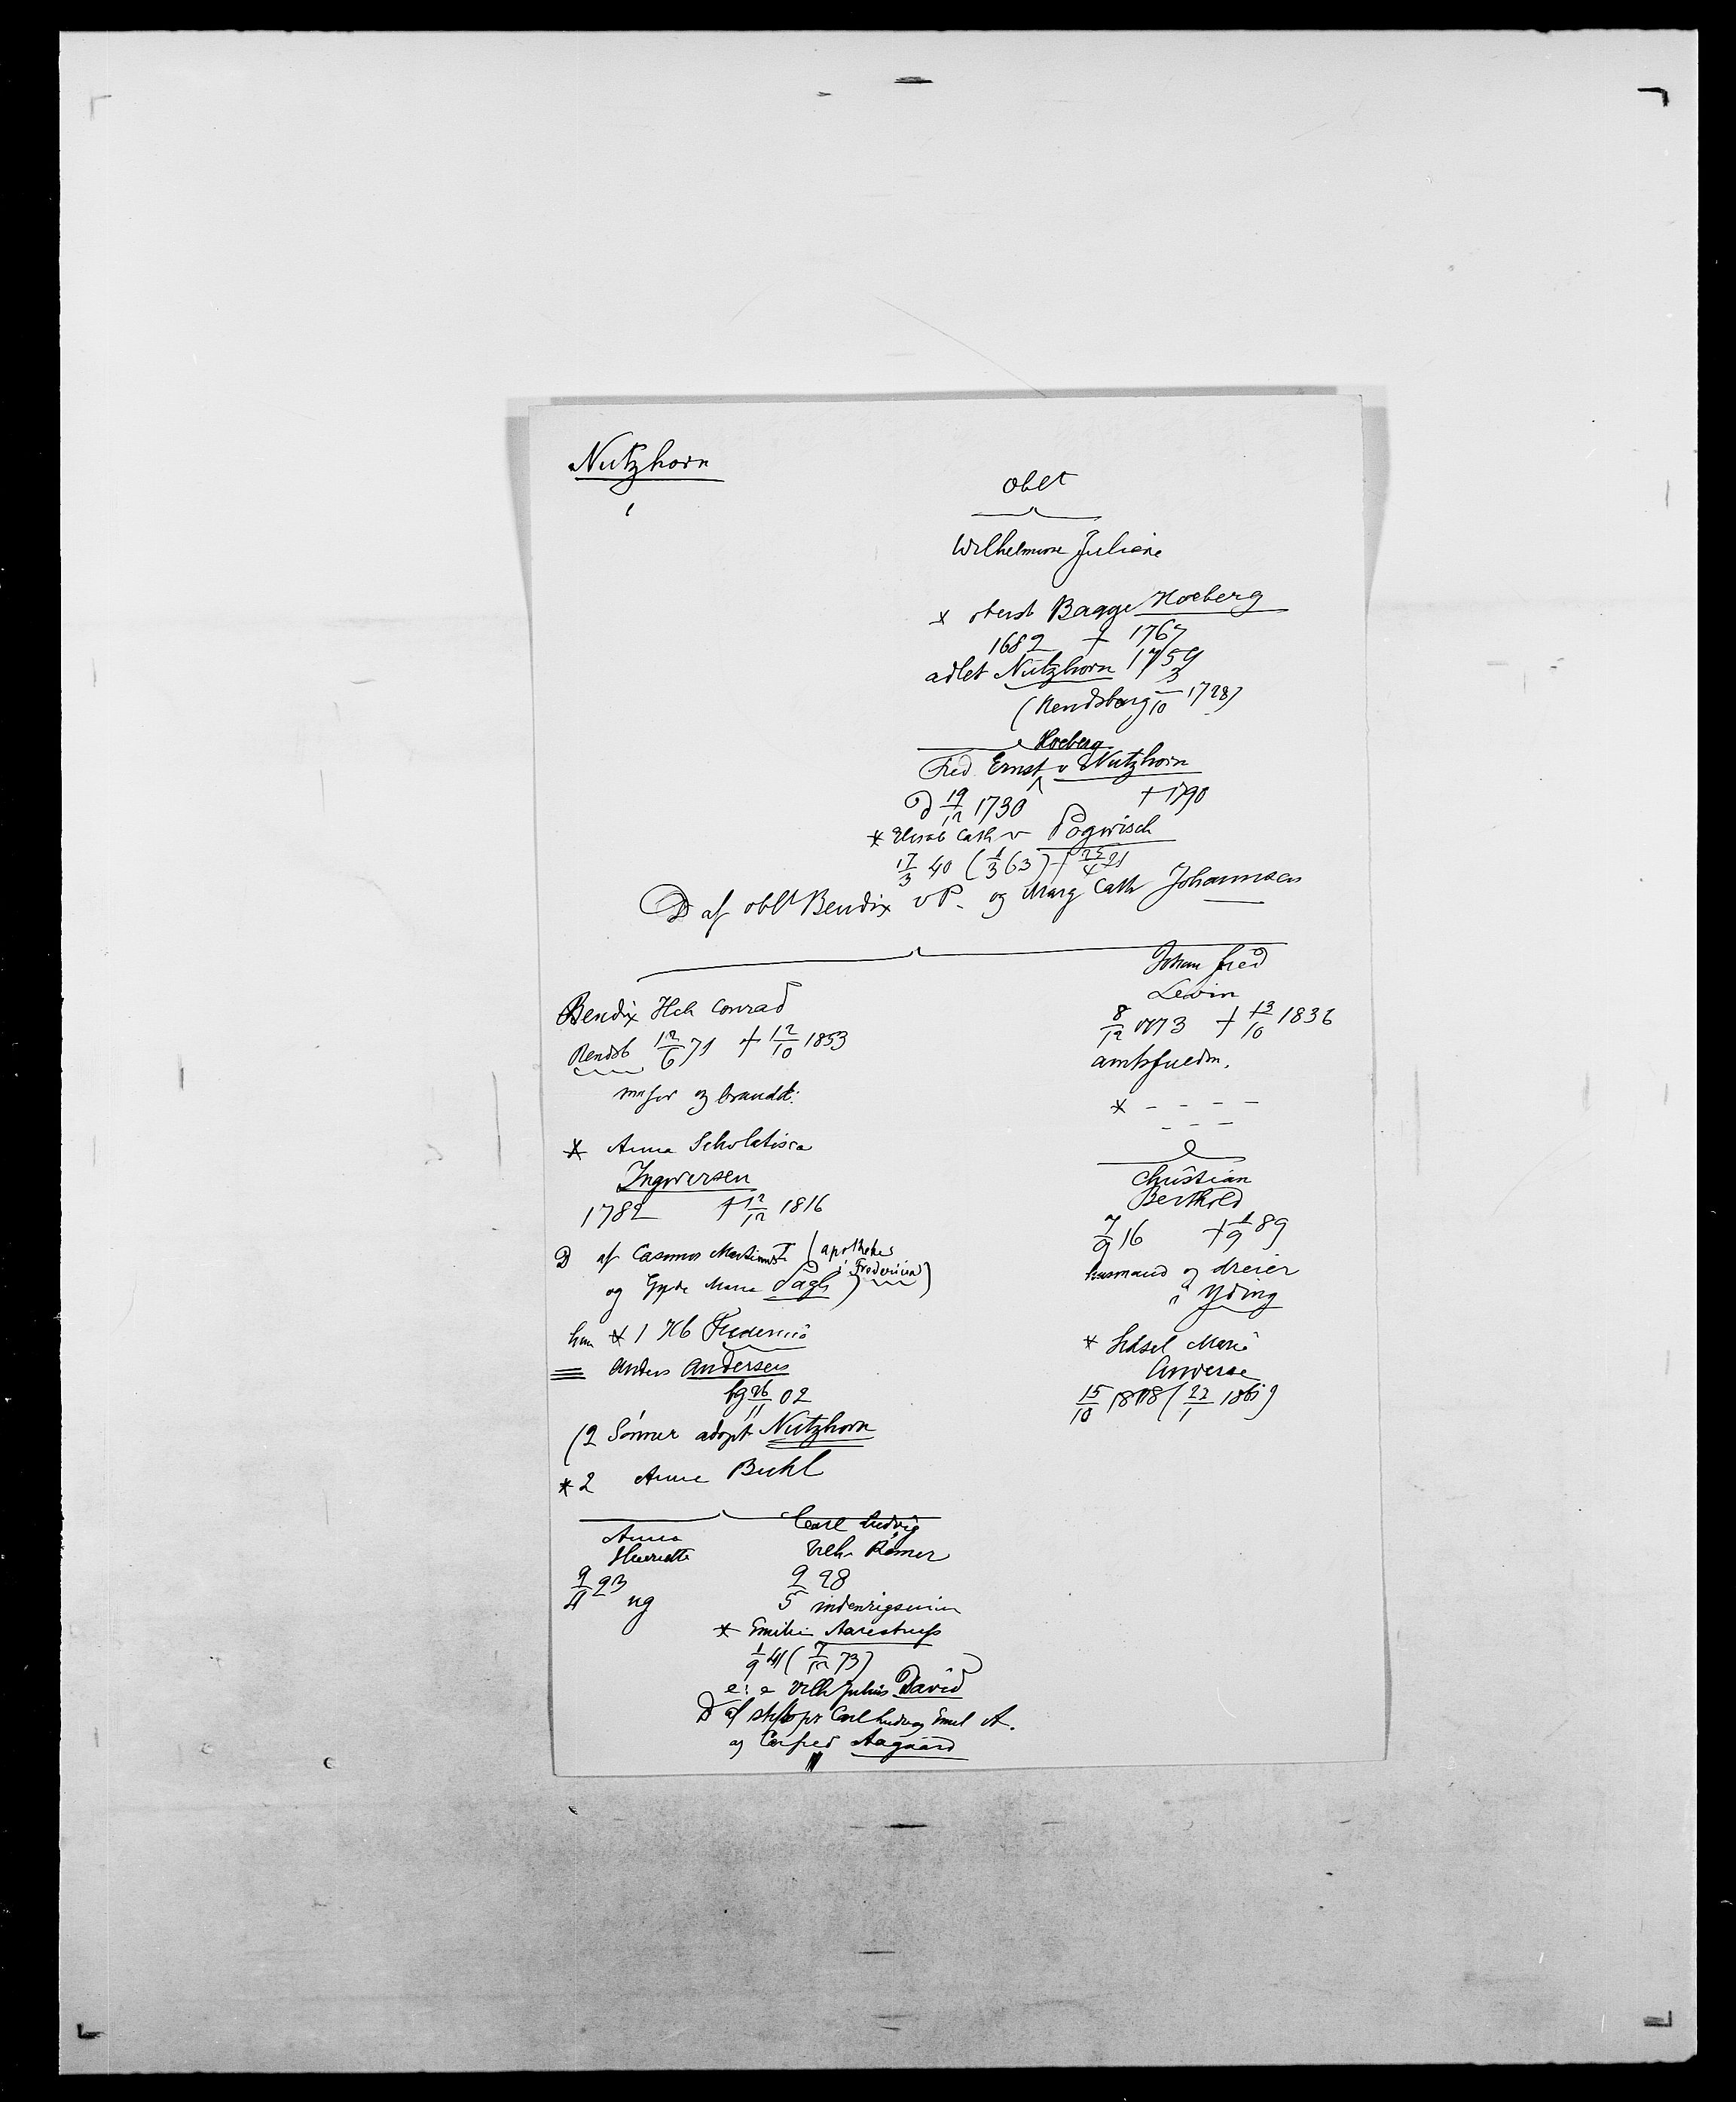 Nutzhorn
oblt
Wilhelmine Juliane
* oberst Bagge Hoeberg
1682 † 1767
adlet Nutzhorn 1759
(Rendsborg 3/10 1728)
Hoeberg
Fred. Ernst v Nutzhorn
D 19/12 1730 † 1790
* Elisab Cath v Pogwisch
17/3 40 (1/3 63) † 25/4 21
D af oblt Bendix v P. og Marg Cath Johannsen
Bendix Hch Conrad
Rendsb 12/6 71 † 12/10 1853
major og branddt:
* Anna Scholatisca
Ingwersen
1782 † 12/12 1816
D af Casimus Martinus I (apotheker
i Fredericia)
og Gyde Maria Pagh
hun * 1 Kb Fredericia
Anders Andersen
bg 26/11 02
(2 Sönner adopt Nutzhorn
* 2 Anne Buhl
Anna
Henriette
9/4 23 ug
Carl Ludvig
Vilh. Rømer
9/5 28
indenrigsmin
* Emilie Aarestrup
1/9 41 (7/12 73)
e: e Vilh Julius David
D af stiftspr Carl Ludvig Emil A.
og Casped Aagaard
Johan Fred
Lewin
8/12 1773 † 13/10 1836
amtsfuldm.
* - - - -
- - -
Christian
Berthold
7/9 16 † 1/9 89
husmand og dreier
i Yding
* Sidsel Marie
15/10 1808 (22/1 1861)